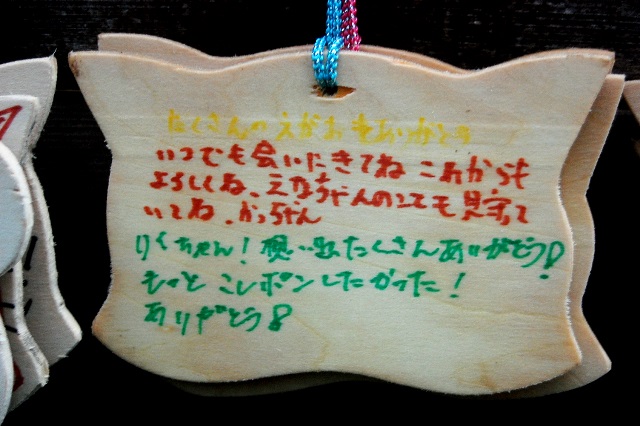 たくさんのえがおをありがとう
いつでも会いにきてね これからも
よろしくね、えなちゃんのことも見守って
いてね、かっちゃん
りくちゃん！想い出たくさんありがとう！
もっと こしポンしたかった！
ありがとう！